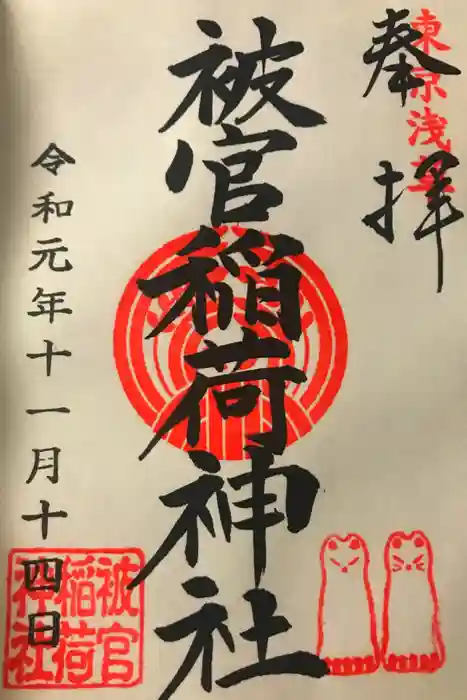 東京浅草
奉拝
被官稲荷神社
令和元年十一月十四日
被官
稲荷
神社